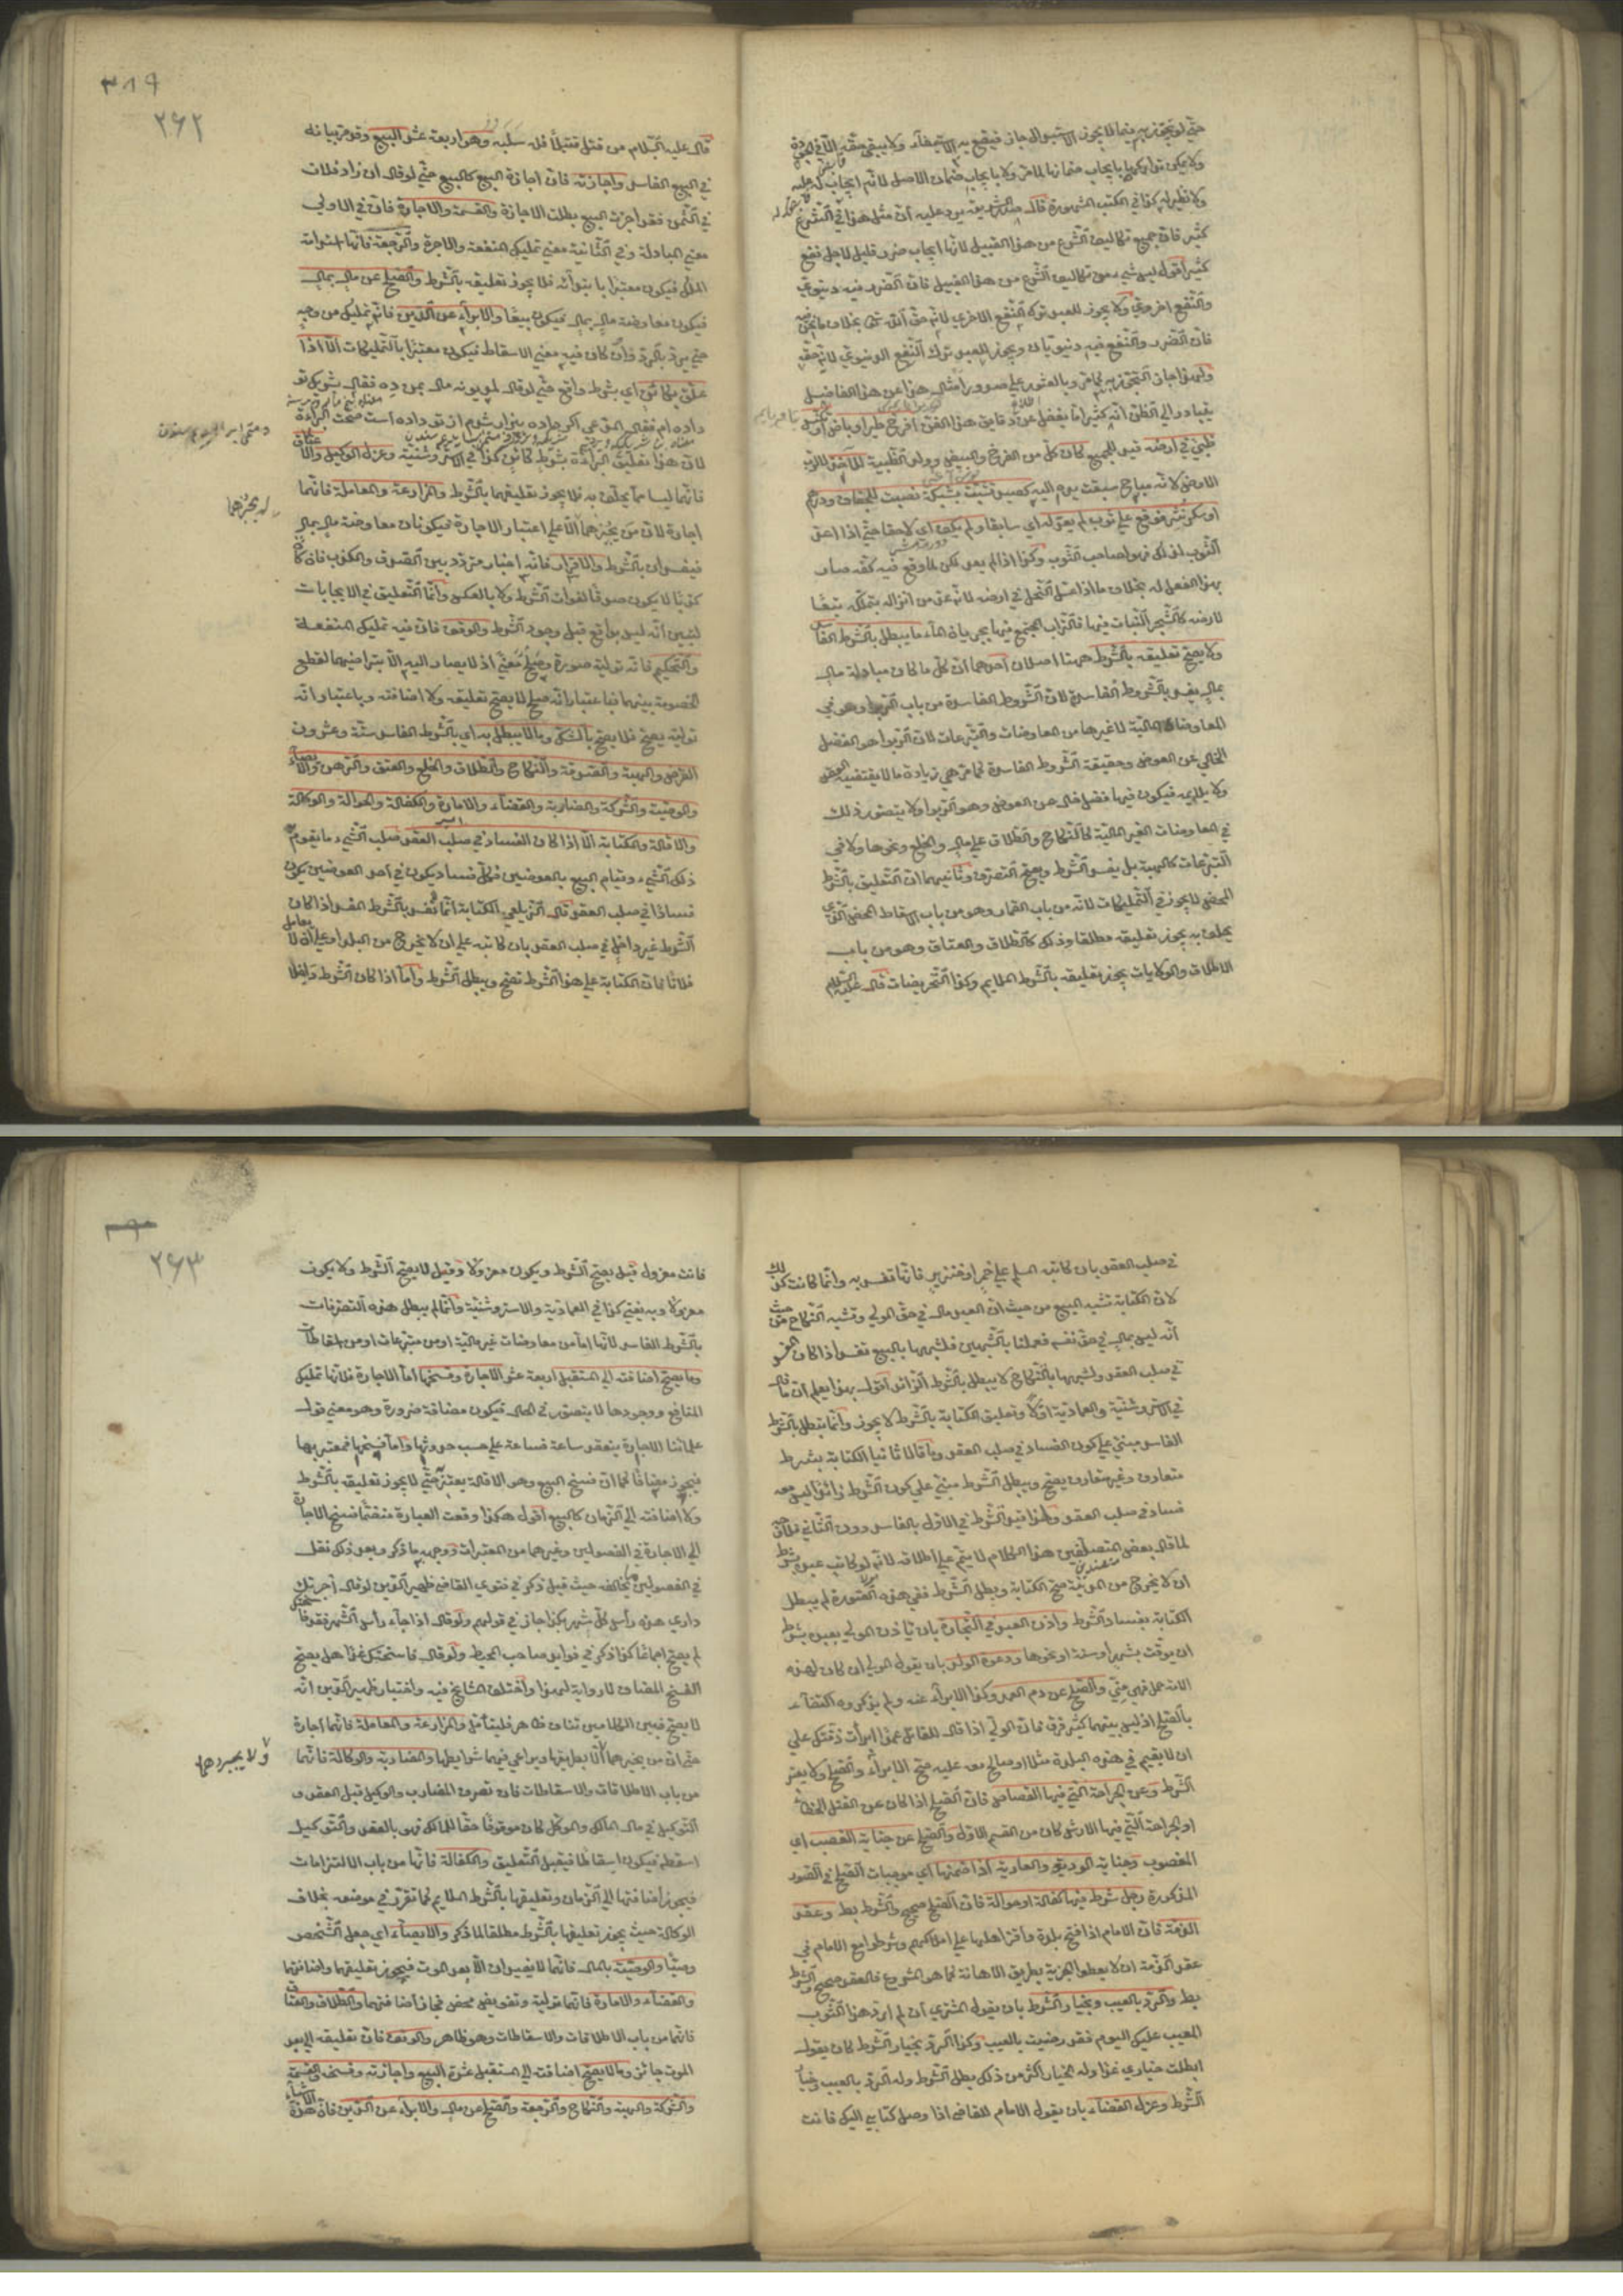 حتى لو تجوز به فيما لا يجوز الاستبدال جاز فيقع به الاستيفاء ولا يبقى حقه الا في الجودة
ولا يمكن تداركها بايجاب ضمانها لما مر ولا بايجاب ضمان الاصل لانه ايجاب له عليه
ولا نظير له كذا في الكتب المشهورة قال صدر الشريعة يرد عليه ان مثل هذا في الشرع
كثير فان جميع تكاليف الشرع من هذا القبيل لانها ايجاب ضرر قليل لاجل نفع
كثير اقول ليس شيء من تكاليف الشرع من هذا القبيل فان الضرر فيه دنيوي
والنفع اخروي ولا يجوز للعبد ترك النفع الاخروي لانه حق الله تعالى بخلاف ما نحن فيه
فان الضرر والنفع فيه دنيويان ويجوز للعبد ترك النفع الدنيوي لانه حقه
ولهذا جاز التجوز به كما مر وبالعثور على صدور امثال هذا عن هذا الفاضل
يتبادر الى الظن انه كثيرا ما يغفل عن دقايق هذا الفن افرخ طير او باض او تكنس
ظبي في ارضه فهو للجميع كان كل من الفرخ والبيض وولد الظبية للآخذ لا لرب
الارض لانه مباح سبقت يده اليه كصيد تشبث بشبكة نصبت للجفاف ودرهم
او سكر نثر فوقع على ثوب لم يعد له اي سابقا ولم يكف اي لاحقا حتى اذا اعد
الثوب لذلك فهو لصاحب الثوب وكذا اذا لم يعد لكن لما وقع فيه كفه صار
بهذا الفعل له بخلاف ما اذا عسل النحل في ارضه لانه عد من انزاله يتملكه تبعا
لارضه كالشجر النبات فيها والتراب المجتمع فيها بجريان الماء ما يبطل بالشرط الفاسد
ولا يصح تعليقه بالشرط ههنا اصلان احدهما ان كل ما كان مبادلة مال
بمال يفسد بالشروط الفاسدة لان الشروط الفاسدة من باب الربوا وهو في
المعاوضات المالية لا غيرها من المعاوضات والتبرعات لان الربوا هو الفضل
الخالي عن العوض وحقيقة الشروط الفاسدة كما مر هي زيادة ما لا يقتضيه العقد
ولا يلايمه فيكون فيها فضل خال عن العوض وهو الربوا ولا يتصور ذلك
في المعاوضات الغير المالية كالنكاح والطلاق على مال والخلع ونحوها ولا في
التبرعات كالهبة بل يفسد الشرط ويصح التصرف وثانيهما ان التعليق بالشرط
المحض لا يجوز في التمليكات لانه من باب القمار وهو من باب الاسقاط المحض الذي
يحلف به يجوز تعليقه مطلقا وذلك كالطلاق والعتاق وهو من باب
الاطلاق والولايات يجوز تعليقه بالشرط الملايم وكذا التحريضات قال عليه السلام
٣٨٩
٢٦٢
قال عليه السلام من قتل قتيلا فله سلبه وهو اربعة عشر البيع وقد مر بيانه
في البيع الفاسد واجازته فان اجازة البيع كالبيع حتى لو قال ان زاد فلان
في الثمن فقد اجزت البيع بطلت الاجازة والقسمة والاجارة فان في الاولى
معنى المبادلة وفي الثانية معنى تمليك المنفعة والاجرة والرجعة فانها استدامة
الملك فيكون معتبرا بابتدائه فلا يجوز تعليقه بالشرط والصلح عن مال بمال
فيكون معاوضة مال بمال فيكون بيعا والابراء عن الدين فانه تمليك من وجه
حتى يرتد بالرد وان كان فيه معنى الاسقاط فيكون معتبرا بالتمليكات الا اذا
علق بكائن اي بشرط واقع حتى لو قال لمديونه مال بمن ده فقال بشريك تو
داده ام فقال المدعي اكر داده بيزار شدم از تو داده است صحت البراءة
لان هذا تعليق البراءة بشرط كائن كذا في الاستروشنية وعزل الوكيل والاعتكاف
فانهما ليسا مما يحلف به فلا يجوز تعليقهما بالشرط والمزارعة والمعاملة فانهما
لم يجزهما
اجارة لان من يجيزهما الا على اعتبار الاجارة فيكونان معاوضة مال بمال
فيفسدان بالشرط والاقرار فانه اخبار متردد بين الصدق والكذب فان كان
كذبا لا يكون صدقا لفوات الشرط ولا بالعكس وانما التعليق في الايجابات
ليتبين انه ليس بواقع قبل وجود الشرط والوقف فان فيه تمليك المنفعة
والتحكيم فانه تولية صورة وصلح معنى اذ لا يصار اليه الا بتراضيهما لقطع
الخصومة بينهما فباعتبار انه صلح لا يصح تعليقه ولا اضافته وباعتبار انه
تولية يصح فلا يصح بالشك وما لا يبطل به اي بالشرط الفاسد ستة وعشرون
القرض والهبة والصدقة والنكاح والطلاق والخلع والعتق والرهن والايصاء
والوصية والشركة والمضاربة والقضاء والامارة والكفالة والحوالة والوكالة
والاقالة والكتابة الا اذا كان الفساد في صلب العقد صلب الشيء ما يقوم به
ذلك الشيء وقيام البيع بالعوضين فكل فساد يكون في احد العوضين يكون
فسادا في صلب العقد قال الزيلعي الكتابة انما تفسد بالشرط المفسد اذا كان
الشرط غير داخل في صلب العقد بان كاتبه على ان لا يخرج من البلد او على ان لا يعامل
فلانا فان الكتابة على هذا الشرط تصح ويبطل الشرط واما اذا كان الشرط داخلا
في صلب العقد بان كاتب المسلم على خمر او خنزير فانها تفسد به وانما كانت كذلك
لان الكتابة تشبه البيع من حيث ان العبد مال في حق المولى وتشبه النكاح من حيث
انه ليس بمال في حق نفسه فعملنا بالشبهين فلشبهها بالبيع تفسد اذا كان المفسد
في صلب العقد ولشبهها بالنكاح لا يبطل بالشرط الزائد اقول بهذا يعلم ان ما قال
في الاستروشنية والعمادية اولا وتعليق الكتابة بالشرط لا يجوز وانما تبطل بالشرط
الفاسد مبني على كون الفساد في صلب العقد وما قالا ثانيا الكتابة بشرط
متعارف وغير متعارف يصح ويبطل الشرط مبني على كون الشرط زائدا ليس معه
فساد في صلب العقد ولهذا قيد الشرط في الاول بالفاسد دون الثاني خلاف
لما قال بعض المتصلفين هذا الكلام لا يتم على اطلاقه لانه لو كاتب عبده بشرط
ان لا يخرج من المدينة صح الكتابة وبطل الشرط ففي هذه الصورة لم يبطل
الكتابة بفساد الشرط واذن العبد في التجارة بان ياذن المولى بعبده بشرط
ان يوقت بشهر او سنة او نحوها ودعوة الولد بان يقول المولى ان كان لهذه
الامة حمل فهو مني والصلح عن دم العمد وكذا الابراء عنه ولم يذكره اكتفاء
بالصلح اذ ليس بينهما كثير فرق فان الولي اذا قال للقاتل عمدا ابرأت ذمتك على
ان لا يقيم في هذه البلدة مثلا او صالح معه عليه صح الابراء والصلح ولا يعتبر
الشرط وعن الجراحة التي فيها القصاص فان الصلح اذا كان عن القتل الخطأ
او الجراحة التي فيها الارش كان من القسم الاول والصلح عن جناية الغصب اي
المغصوب وجناية الوديعة والعارية اذا ضمنها اي موجبات الصلح في الصور
المذكورة رجل شرط فيها كفالة او حوالة فان الصلح صحيح والشرط بط وعقد
الذمة فان الامام اذا فتح بلدة واقر اهلها على املاكهم وشرطوا مع الامام في
عقد الذمة ان لا يعطوا الجزية بطريق الاهانة كما هو المشروع فالعقد صحيح والشرط
بط والرد بالعيب وبخيار الشرط بان يقول المشتري ان لم ارد هذا الثوب
المعيب عليك اليوم فقد رضيت بالعيب وكذا الرد بخيار الشرط كان يقول
ابطلت خياري غدا وله الخيار اكثر من ذلك بطل الشرط وله الرد بالعيب وخيار
الشرط وعزل القضاء بان يقول الامام للقاضي اذا وصل كتابي اليك فانت
٢٦٣
فانت معزول قيل يصح الشرط ويكون معزولا وقيل لا يصح الشرط ولا يكون
معزولا وبه يفتى كذا في العمادية والاستروشنية وانما لم يبطل هذه التصرفات
بالشرط الفاسد لانها اما من معاوضات غير مالية او من متبرعات او من اسقاطات
وما يصح اضافته الى المستقبل اربعة عشر الاجارة وفسخها اما الاجارة فلانها تمليك
المنافع ووجودها لا يتصور في الحال فيكون مضافة ضرورة وهو معنى قول
علمائنا الاجارة ينعقد ساعة فساعة على حسب حدوثها واما فسخها فمعتبر بها
فيجوز مضافا كما ان فسخ البيع وهو الاقالة يعتبر به حتى لا يجوز تعليقه بالشرط
ولا اضافته الى الزمان كالبيع اقول هكذا وقعت العبارة متضمنا فسخ الاجارة
الى الاجارة في الفصولين وغيرهما من المعتبرات ووجهه ما ذكر وبعد ذلك نقل
في الفصولين ما يخالفه حيث قيل ذكر في فتوى القاضي ظهير الدين لو قال اجرتك
داري هذه رأس كل شهر بكذا جاز في قولهم ولو قال اذا جاء رأس الشهر فقد فاسختك
لم يصح اجماعا كذا ذكر في فوايد صاحب المحيط ولو قال فاسختك غدا هل يصح
الفسخ المضاف لا رواية لهذا واختلف المشايخ فيه واختيار ظهير الدين انه
لا يصح فبين الكلامين تناف ظاهر فليتأمل والمزارعة والمعاملة فانهما اجارة
ولا يجيزهما
حتى ان من يجيزهما الا بطريقها ويراعي فيهما شرايطها والمضاربة والوكالة فانهما
من باب الاطلاقات والاسقاطات فان تصرف المضارب والوكيل قبل العقد و
التوكيل في مال المالك والموكل كان موقوفا حقا للمالك فهو بالعقد والتوكيل
اسقطه فيكون اسقاطا فيقبل التعليق والكفالة فانها من باب الالتزامات
فيجوز اضافتها الى الزمان وتعليقها بالشرط الملايم كما تقرر في موضعه بخلاف
الوكالة حيث يجوز تعليقها بالشرط مطلقا لما ذكر والايصاء اي جعل الشخص
وصيا والوصية بالمال فانهما لا يفيدان الا بعد الموت فيجوز تعليقهما واضافتهما
والقضاء والامارة فانهما تولية وتفويض محض فجاز اضافتهما والطلاق والعتاق
فانهما من باب الاطلاقات والاسقاطات وهو ظاهر والوقف فان تعليقه الى بعد
الموت جائز وما لا يصح اضافته الى المستقبل عشرة البيع واجازته وفسخه والقسمة
والشركة والهبة والنكاح والرجعة والصلح عن مال والابراء عن الدين فان هذه الاشياء